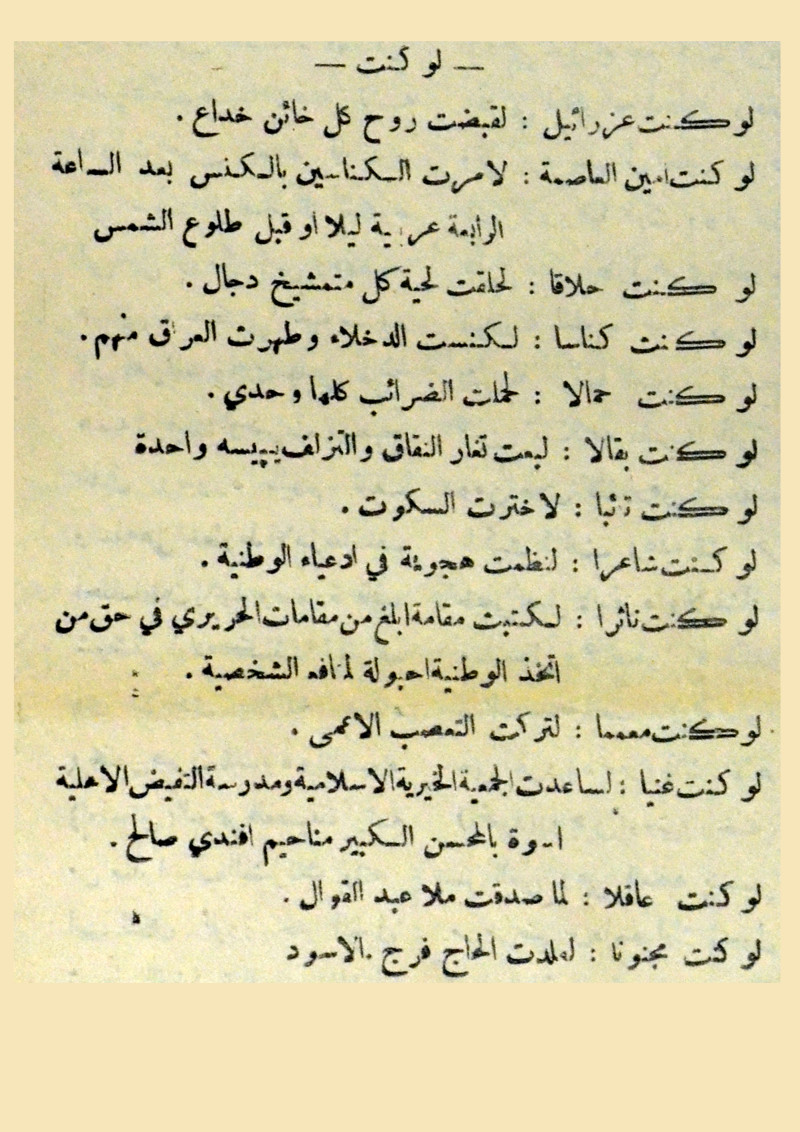 — لو كنت —
لو كنت عزرائيل : لقبضت روح كل خائن خداع .
لو كنت امين العاصمة : لامرت الكناسين بالكنس بعد الساعة
الرابعة عربية ليلا او قبل طلوع الشمس
لو كنت حلاقا : لحلقت لحية كل متمشيخ دجال .
لو كنت كناسا : لكنست الدخلاء وطهرت العراق منهم .
لو كنت حمالا : لحملت الضرائب كلها وحدي .
لو كنت بقالا : لبعت تغار النفاق والتزلف بپيسه واحدة
لو كنت نائبا : لاخترت السكوت .
لو كنت شاعرا : لنظمت هجوية في ادعياء الوطنية .
لو كنت ناثرا : لكتبت مقامة ابلغ من مقامات الحريري في حق من
اتخذ الوطنية احبولة لمنافعه الشخصية .
لو كنت معمما : لتركت التعصب الاعمى .
لو كنت غنيا : لساعدت الجمعية الخيرية الاسلامية ومدرسة التفيض الاهلية
اسوة بالمحسن الكبير مناحيم افندي صالح .
لو كنت عاقلا : لما صدقت ملا عبد القوال .
لو كت مجنونا : الحاج فرج الاسود